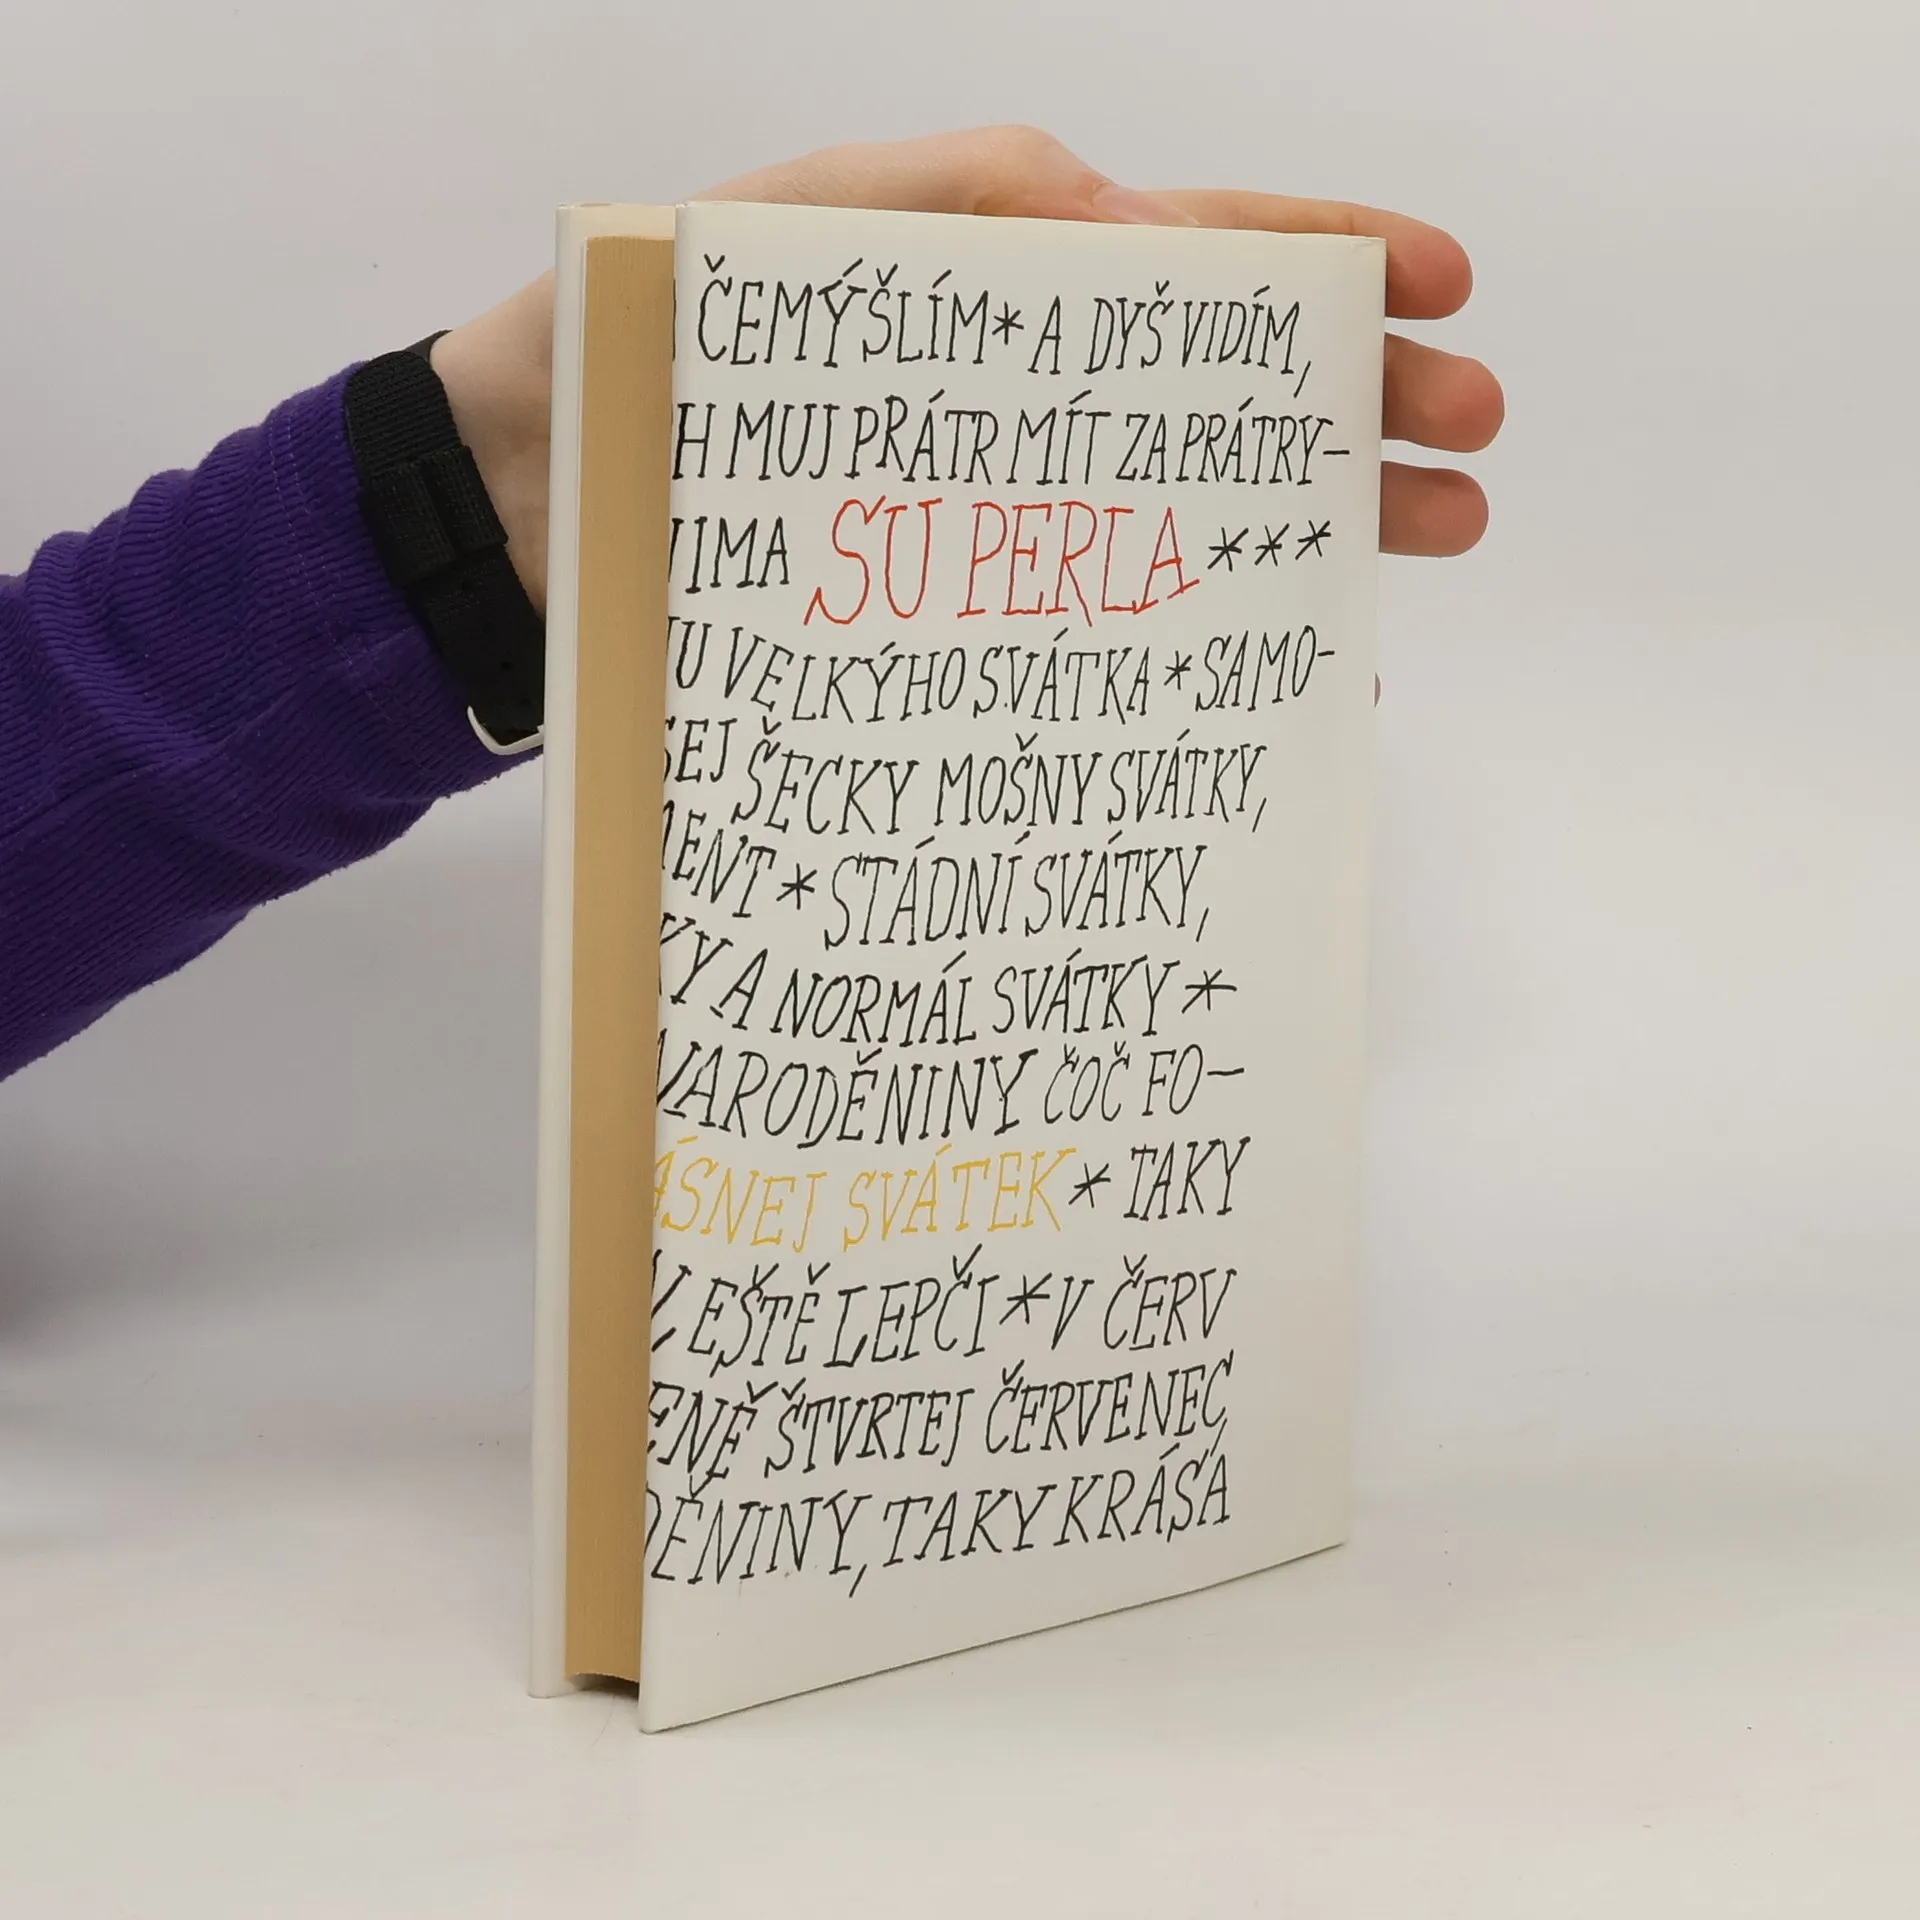 ČEMÝŠLÍM* A DYŠ VIDÍM,
H MUJ PRÁTR MÍT ZA PRÁTRY-
IMA SU PERLA ***
U VELKÝHO SVÁTKA * SAMO-
EJ ŠECKY MOŠNY SVÁTKY,
ENT * STÁDNÍ SVÁTKY,
KY A NORMÁL SVÁTKY *
NARODĚNINY ČOČ FO-
ÁSNEJ SVÁTEK * TAKY
EŠTĚ LEPČI * V ČERV
ENĚ ŠTVRTEJ ČERVENEC,
DĚNINY, TAKY KRÁSA